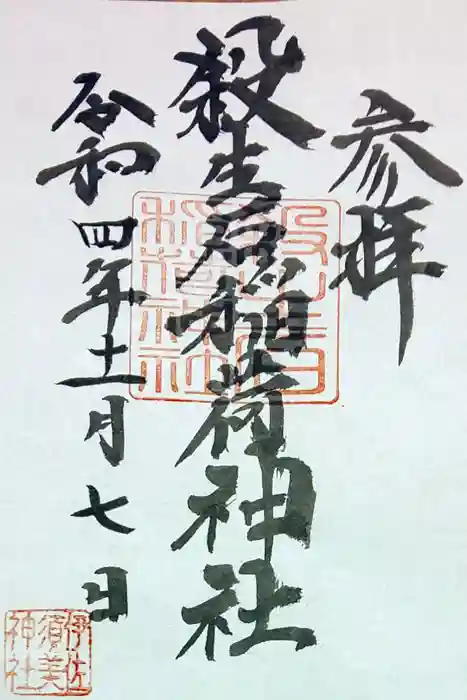 参拝
殺生石稲荷神社
令和四年十一月七日
殺生石稲荷神社
伊佐須美神社